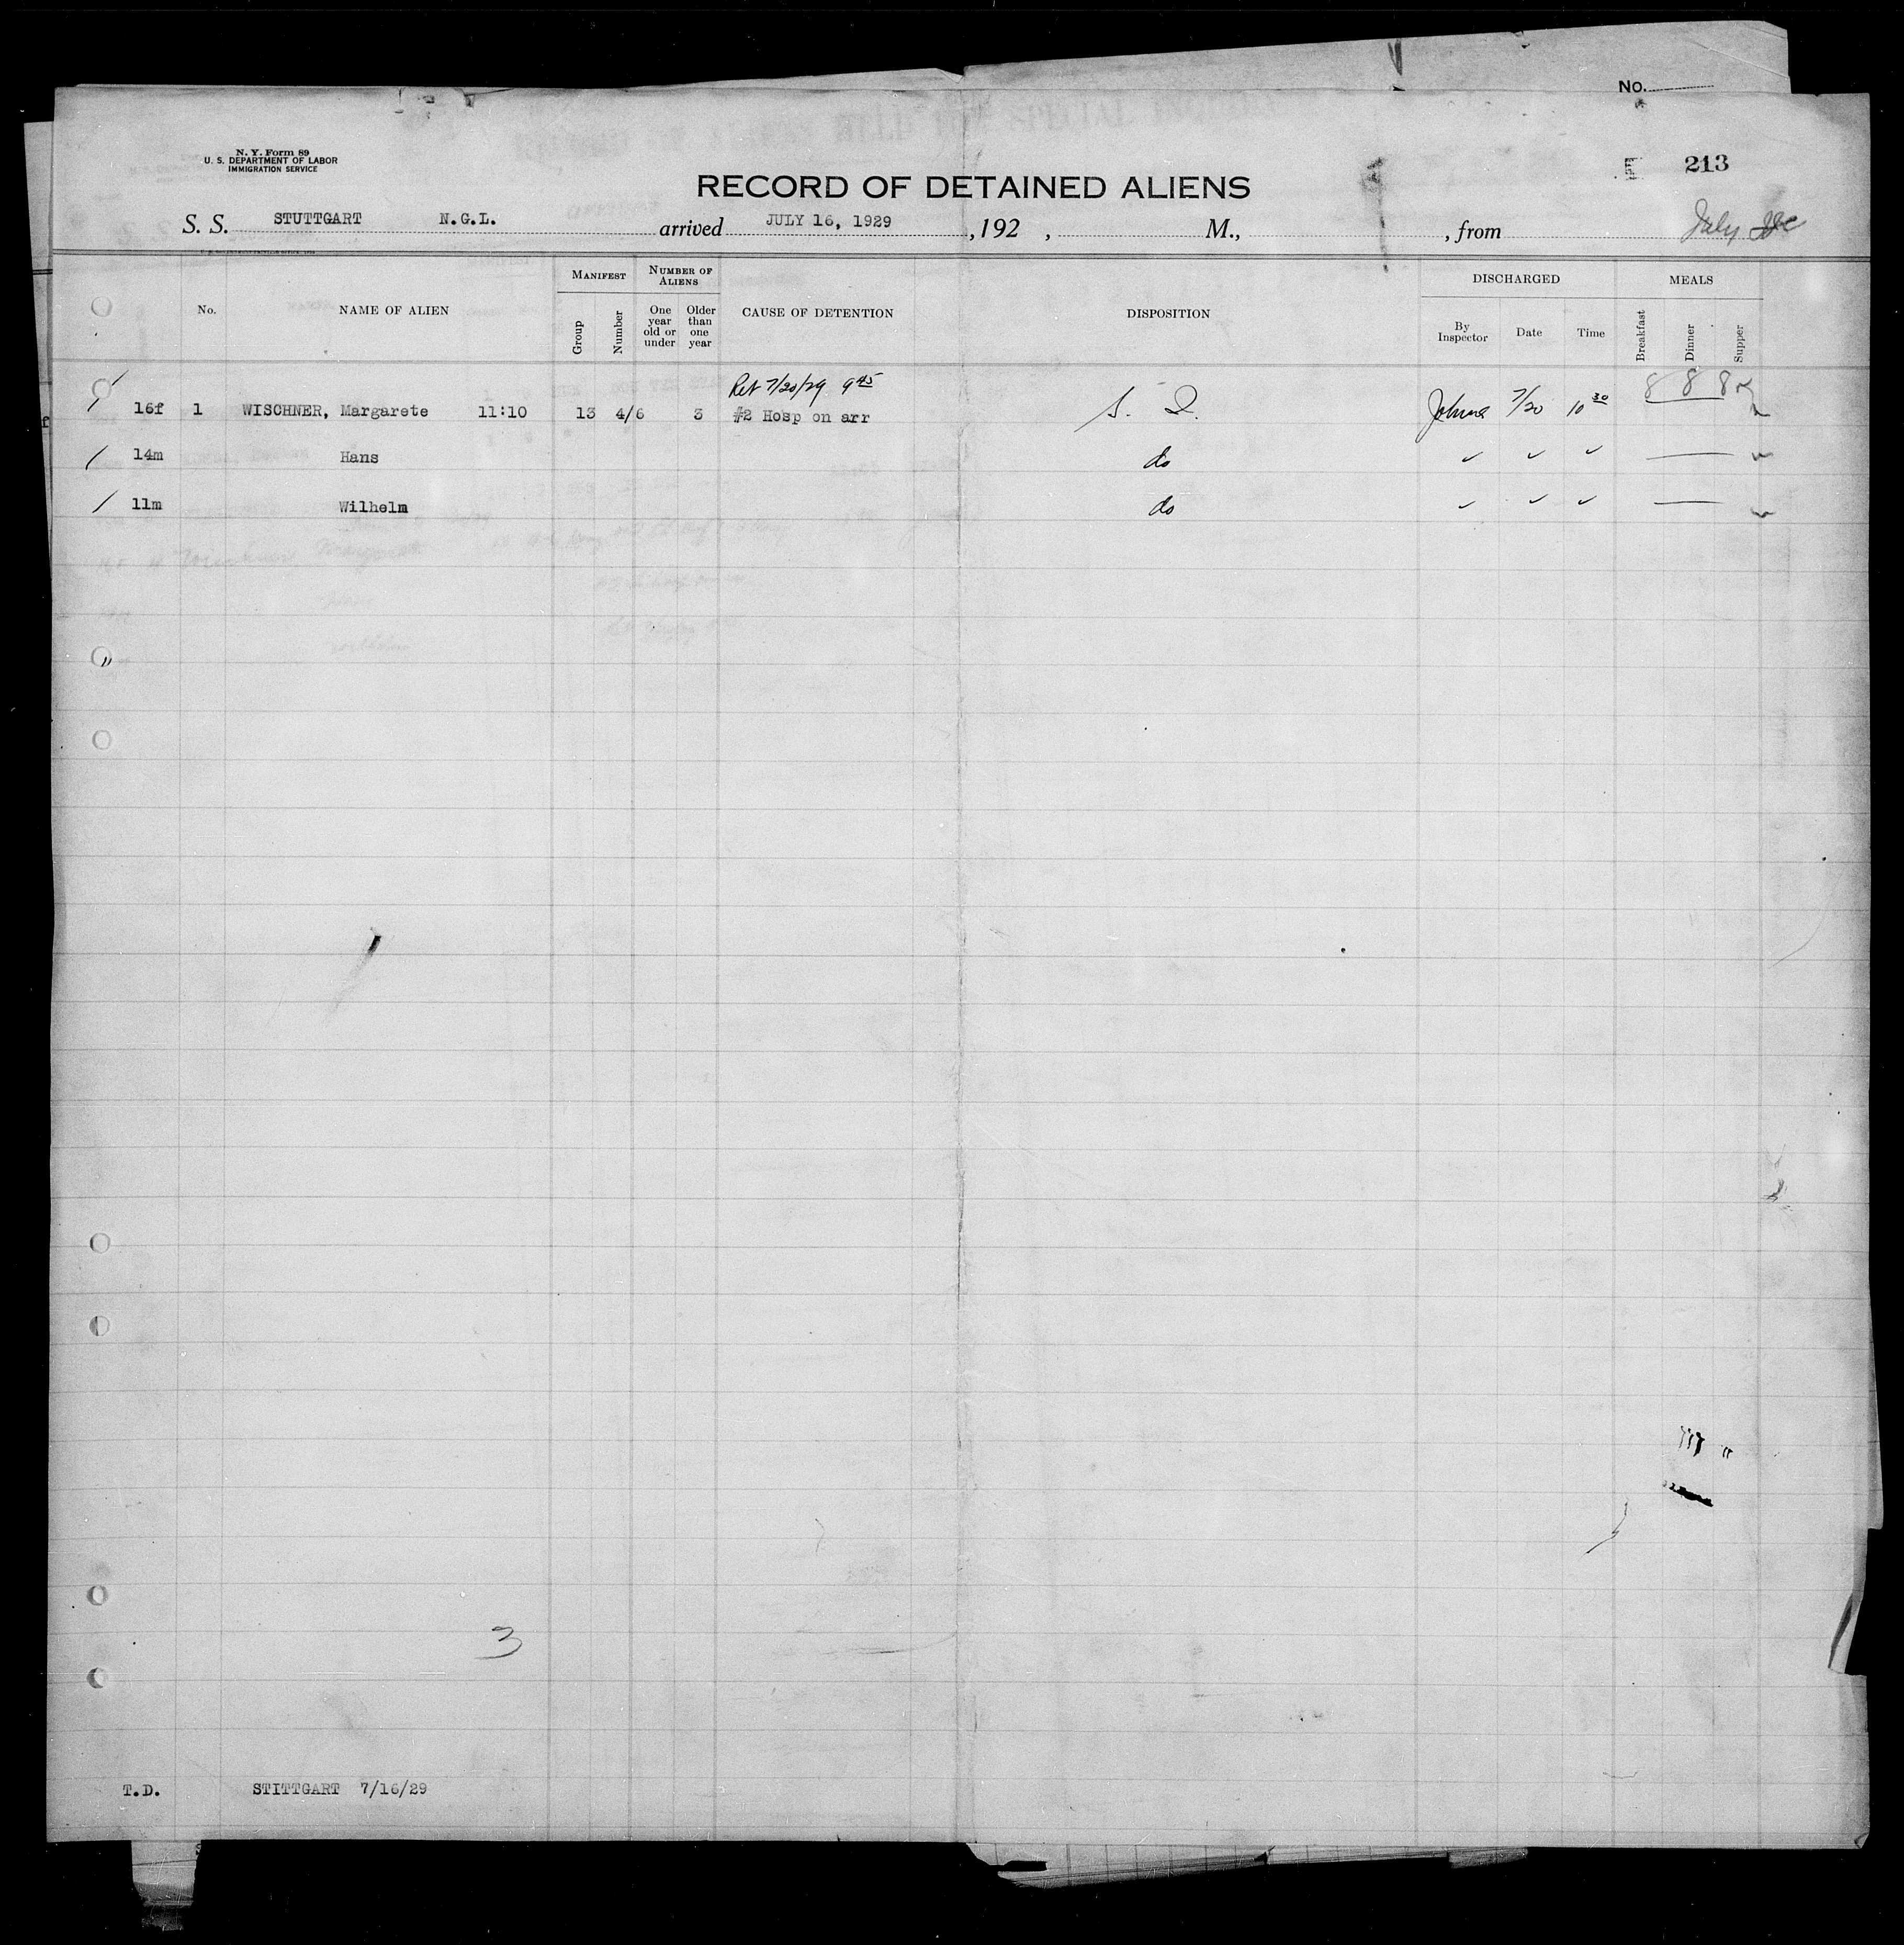 No.
N. Y. Form 89
U. S. DEPARTMENT OF LABOR
IMMIGRATION SERVICE
213
RECORD OF DETAINED ALIENS
S. S. STUTTGART N.G.L. arrived JULY 16, 1929, 192 , M., , from July
No. NAME OF ALIEN MANIFEST Group Number NUMBER OF ALIENS One year old or under Older than one year CAUSE OF DETENTION DISPOSITION DISCHARGED By Inspector Date Time MEALS Breakfast Dinner Supper
Ret 7/20/29 9 45
16f 1 WISCHNER, Margarete 11:10 13 4/6 3 #2 Hosp on arr 7/20 10 30 8 8 8
14m Hans do
11m Wilhelm do
3
T.D. STITTGART 7/16/29